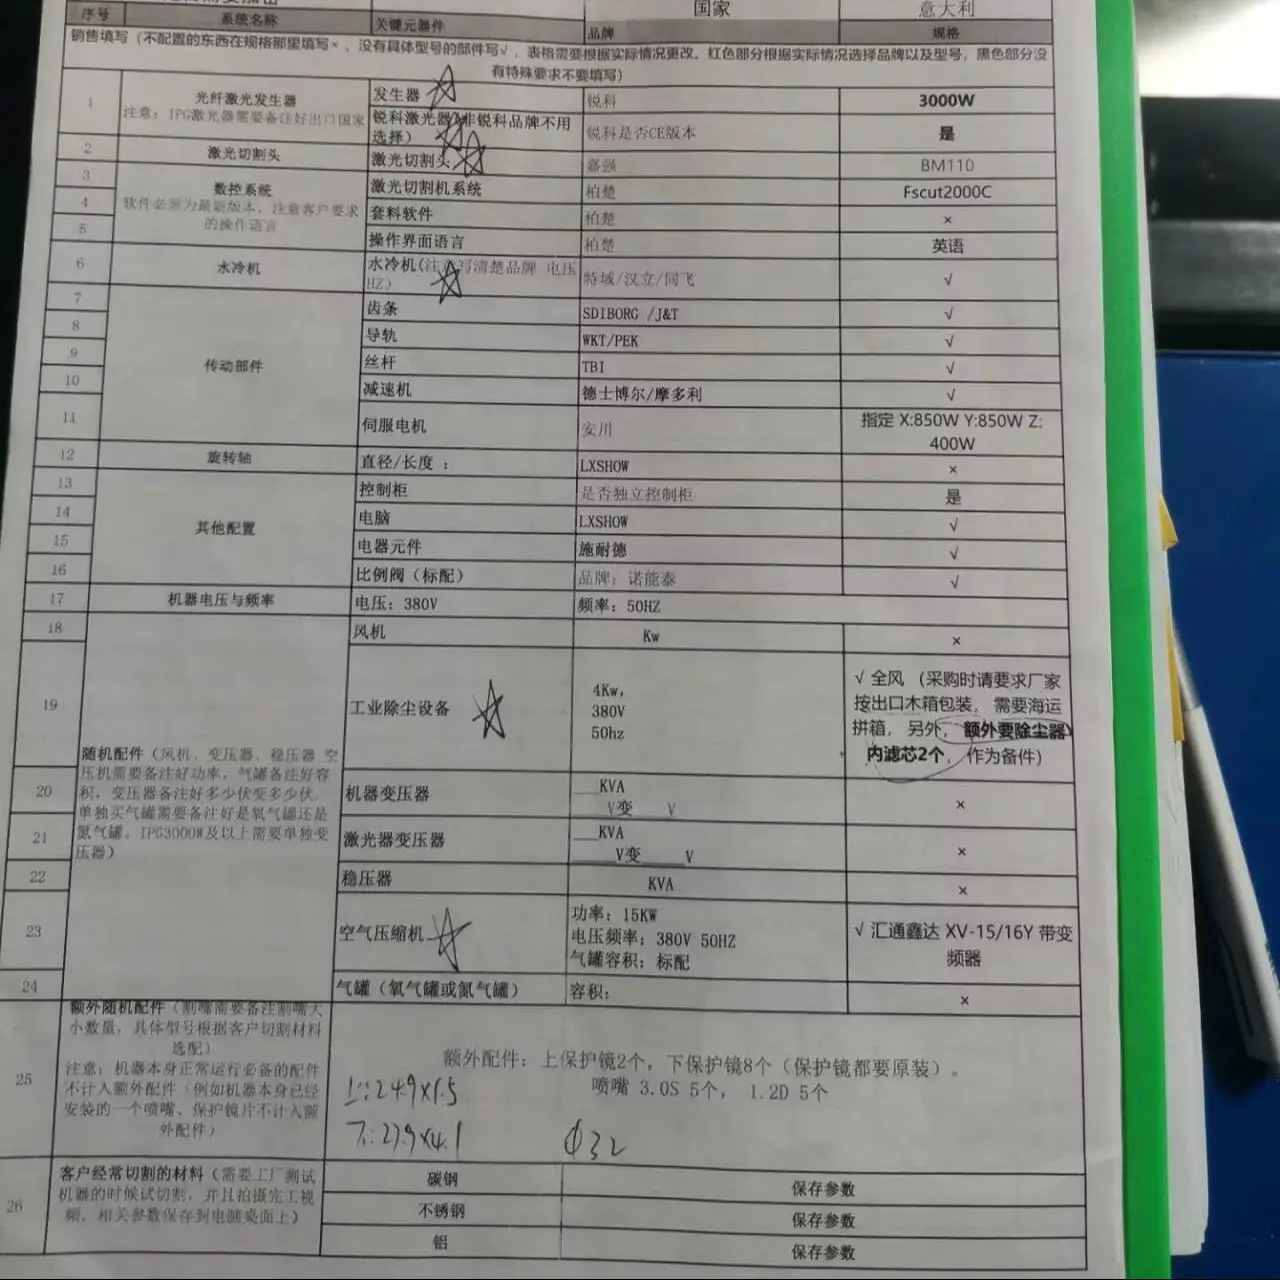 国家 意大利
序号 系统名称 关键元器件 品牌 规格
销售填写（不配置的东西在规格那里填写×，没有具体型号的部件写√，表格需要根据实际情况更改。红色部分根据实际情况选择品牌以及型号，黑色部分没
有特殊要求不要填写）
1 光纤激光发生器 发生器 锐科 3000W
注意：IPG激光器需要备注好出口国家 锐科激光器(非锐科品牌不用
选择） 锐科是否CE版本 是
2 激光切割头 激光切割头 嘉强 BM110
3 数控系统 激光切割机系统 柏楚 Fscut2000C
4 软件必须为最新版本，注意客户要求 套料软件 柏楚 ×
5 的操作语言 操作界面语言 柏楚 英语
6 水冷机 水冷机(注意写清楚品牌 电压
HZ） 特域/汉立/同飞 √
7 齿条 SDIBORG /J&T √
8 导轨 WKT/PEK √
9 传动部件 丝杆 TBI √
10 减速机 德士博尔/摩多利 √
11 伺服电机 安川 指定 X:850W Y:850W Z:
400W
12 旋转轴 直径/长度 ： LXSHOW ×
13 控制柜 是否独立控制柜 是
14 其他配置 电脑 LXSHOW √
15 电器元件 施耐德 √
16 比例阀（标配） 品牌：诺能泰 √
17 机器电压与频率 电压：380V 频率：50HZ
18 风机 Kw ×
19 工业除尘设备 4Kw，
380V
50hz
√ 全风 （采购时请要求厂家
按出口木箱包装， 需要海运
拼箱， 另外， 额外要除尘器
内滤芯2个， 作为备件）
随机配件（风机、变压器、稳压器 空
压机需要备注好功率，气罐备注好容
积，变压器备注好多少伏变多少伏。
单独买气罐需要备注好是氧气罐还是
氮气罐。IPG3000W及以上需要单独变
压器）
20 机器变压器 ___KVA
___V变____V ×
21 激光器变压器 ___KVA
____V变_____V ×
22 稳压器 KVA ×
23 空气压缩机 功率：15KW
电压频率：380V 50HZ
气罐容积：标配
√ 汇通鑫达 XV-15/16Y 带变
频器
24 气罐（氧气罐或氮气罐） 容积： ×
25 额外随机配件（割嘴需要备注割嘴大
小数量，具体型号根据客户切割材料
选配）
注意：机器本身正常运行必备的配件
不计入额外配件（例如机器本身已经
安装的一个喷嘴、保护镜片不计入额
外配件）
额外配件：上保护镜2个，下保护镜8个（保护镜都要原装）。
喷嘴 3.0S 5个， 1.2D 5个
上:24.9×1.5
下:27.9×4.1 Φ32
26 客户经常切割的材料（需要工厂测试
机器的时候试切割，并且拍摄完工视
频，相关参数保存到电脑桌面上）
碳钢 保存参数
不锈钢 保存参数
铝 保存参数